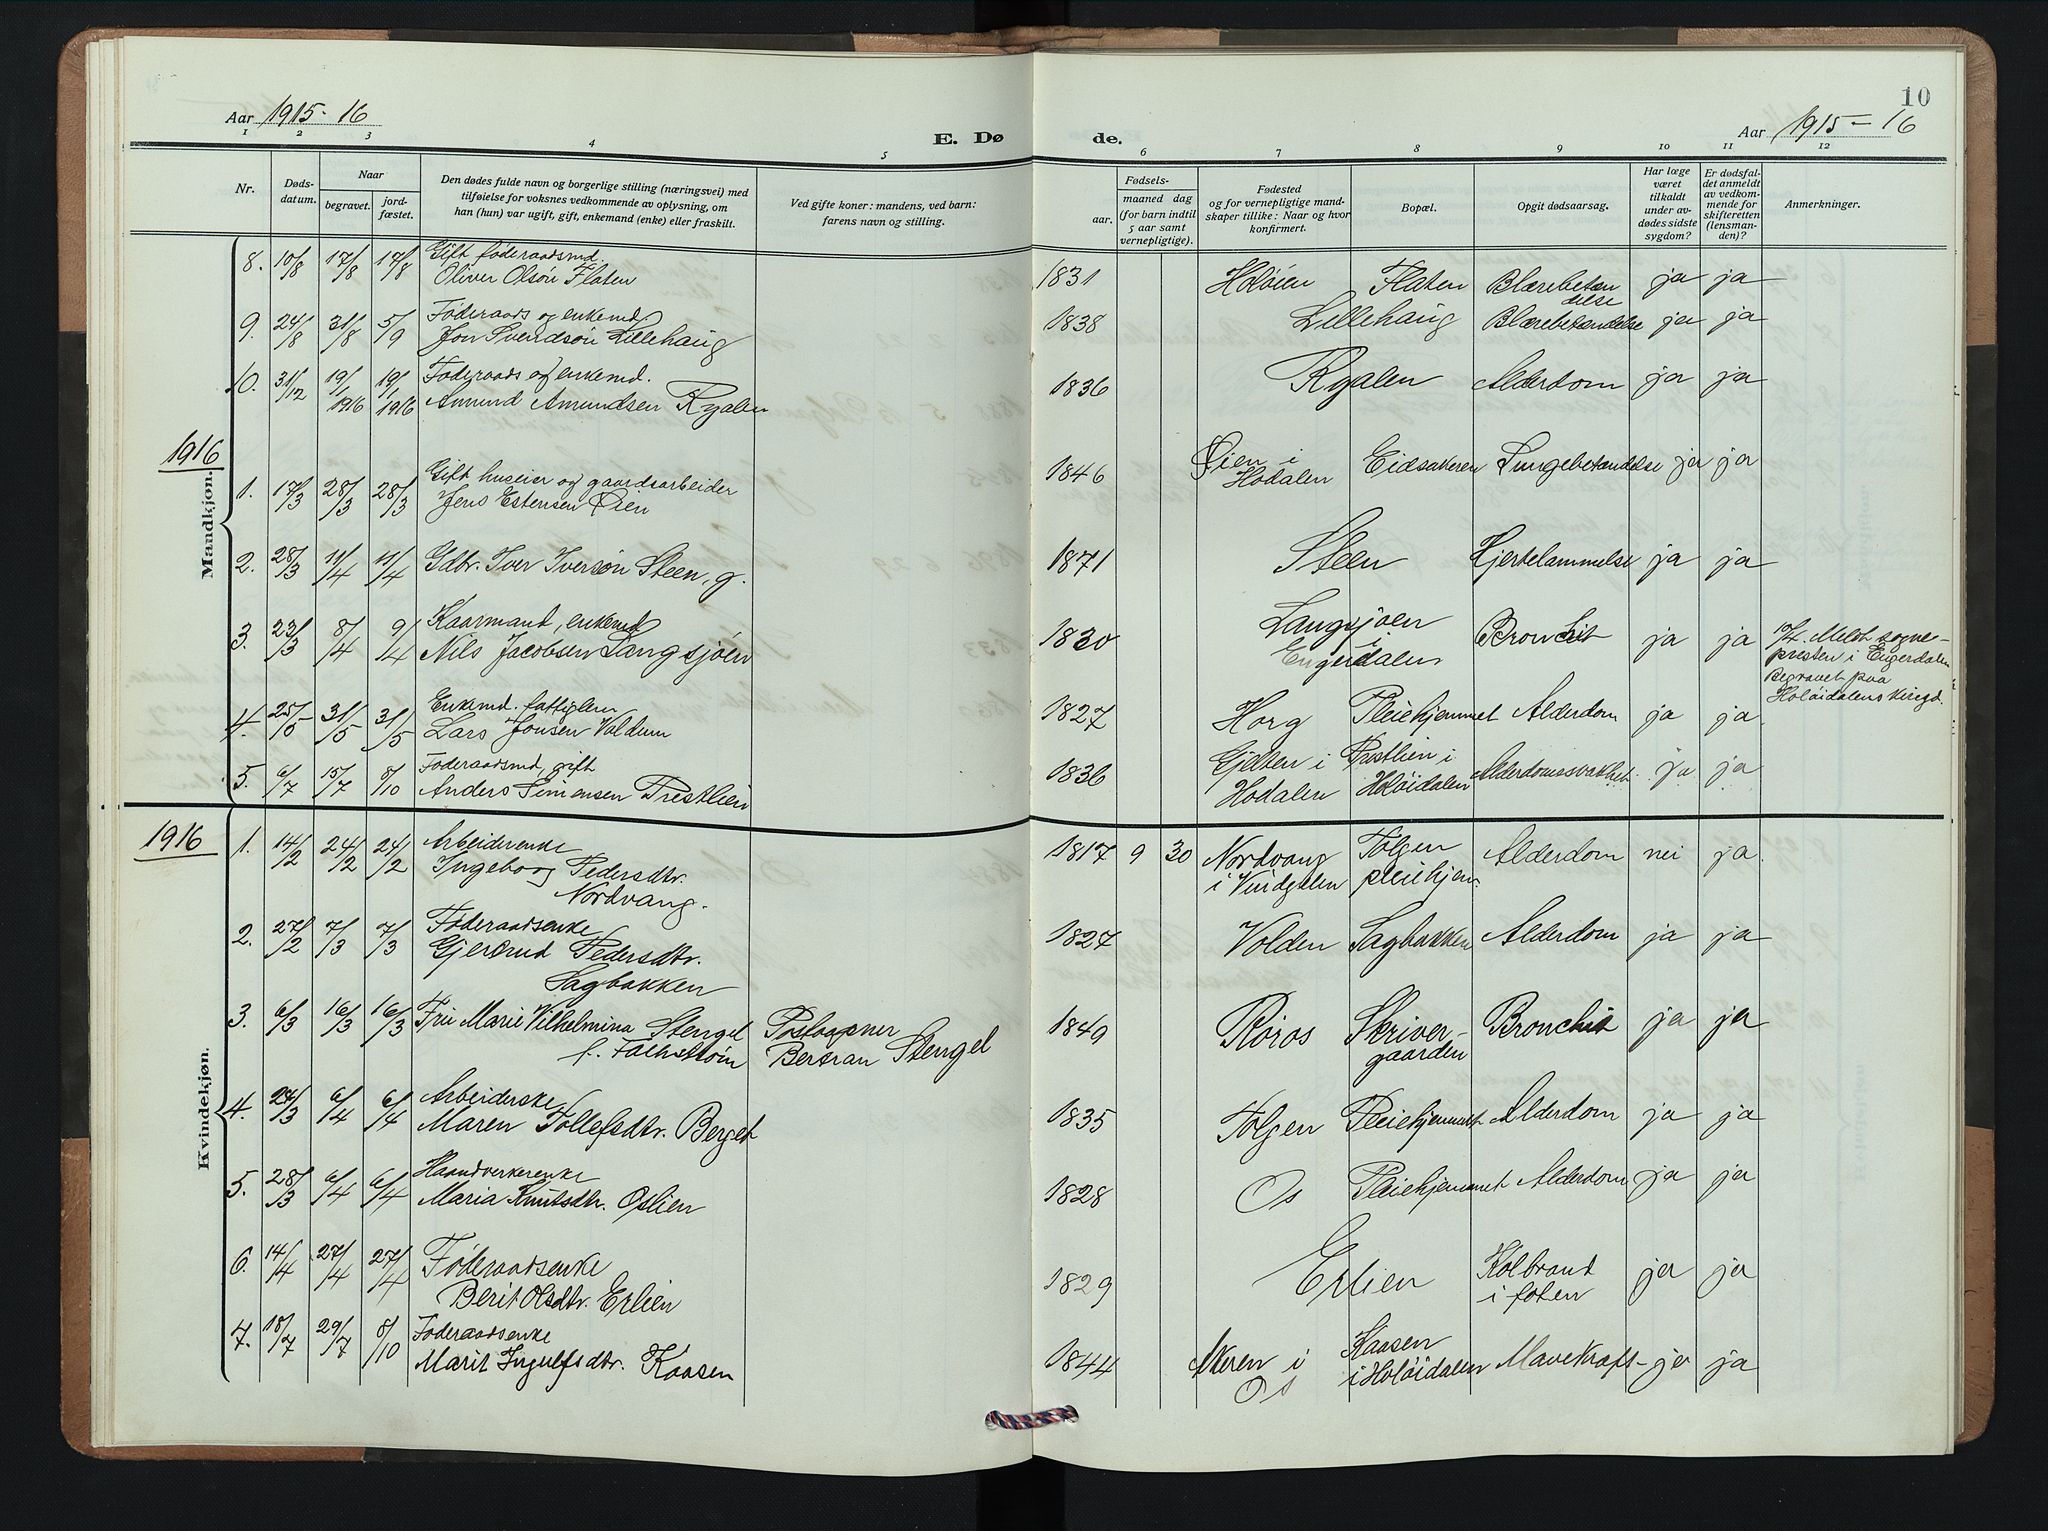 Aar 1915-16
E. Dø
de.
Aar 1915-16
10
1 2 3 4 5 6 7 8 9 10 11 12
Nr.
Døds-
datum.
Naar
begravet.
jord-
fæstet.
Den dødes fulde navn og borgerlige stilling (næringsvei) med
tilføielse for voksnes vedkommende av oplysning, om
han (hun) var ugift, gift, enkemand (enke) eller fraskilt.
Ved gifte koner: mandens, ved barn:
farens navn og stilling.
Fødsels-
aar.
maaned dag
(for barn indtil
5 aar samt
vernepligtige).
Fødested
og for vernepligtige mand-
skaper tillike: Naar og hvor
konfirmert.
Bopæl.
Opgit dødsaarsag.
Har læge
været
tilkaldt
under av-
dødes sidste
sygdom?
Er dødsfal-
det anmeldt
av vedkom-
mende for
skifteretten
(lensman-
den)?
Anmerkninger.
Mandkjøn.
8. 10/8 17/8 17/8 Gift føderaadsmd.
Oliver Olsøn Flaten
1831 Holøien Flaten Blærebetæn
delse ja ja
9. 24/8 31/8 5/9 Føderaads og enkemd.
Jon Svendsøn Lillehaug
1838 Lillehaug Blærebetændelse ja ja
10. 31/12 19/1 1916 19/1 1916 Føderaads og enkemd.
Amund Amundsen Ryalen
1836 Ryalen Alderdom ja ja
1916
1. 17/3 28/3 28/3 Gift huseier og gaardsarbeider
Jens Estensen Øien
1846 Øien i
Hodalen Eidsakeren Lungebetændelse ja ja
2. 28/3 11/4 11/4 Gdbr. Iver Iversøn Steen, g.
1871 Steen Hjertelammelse ja ja
3. 23/3 8/4 9/4 Kaarmand, enkemd
Nils Jacobsen Langsjøen
1830 Langsjoen
i
Engerdalen Bronchit ja ja
17/4. Meldt sogne-
presten i Engerdalen
Begravet paa
Holøidalens kirkegd.
4. 25/5 31/5 31/5 Enkemd. fattiglem
Lars Jonsen Voldum
1827 Horg Pleiehjemmet Alderdom ja ja
5. 6/7 15/7 8/10 Føderaadsmd, gift
Anders Simensen Prestlien
1836 Gjelten i
Hodalen Prestlien i
Holøidalen Alderdomssvakhet ja ja
Kvindekjøn.
1916
1. 14/2 24/2 24/2 Arbeiderenke
Ingeborg Pedersdtr.
Nordvang.
1817 9 30 Nordvang
i Vingelen Tolgen
pleiehjem. Alderdom nei ja.
2. 27/2 7/3 7/3 Føderaadsenke
Gjertrud Pedersdtr.
Sagbakken
1827 Volden Sagbakken Alderdom ja ja
3. 6/3 16/3 16/3 Fru Marie Vilhelmina Stengel
f. Falkstrøm
Postaapner
Bertran Stengel
1849 Røros Skriver-
gaarden Bronchit ja ja
4. 24/3 6/4 6/4 Arbeiderske
Maren Tollefsdtr. Berget
1835 Tolgen Pleiehjemmet Alderdom ja ja
5. 28/3 6/4 6/4 Haandverkerenke
Maria Knutsdtr. Oslien
1828 Os Pleiehjemmet Alderdom ja ja
6. 14/4 27/4 27/4 Føderaadsenke
Berit Olsdtr. Erlien
1829 Erlien Kolbrand
i foten ja ja
7. 18/7 29/7 8/10 Føderaadsenke
Marit Ingulfsdtr. Kaasen
1844 Akeren i
Os Kaasen
i Holøidalen Mavekræft ja ja